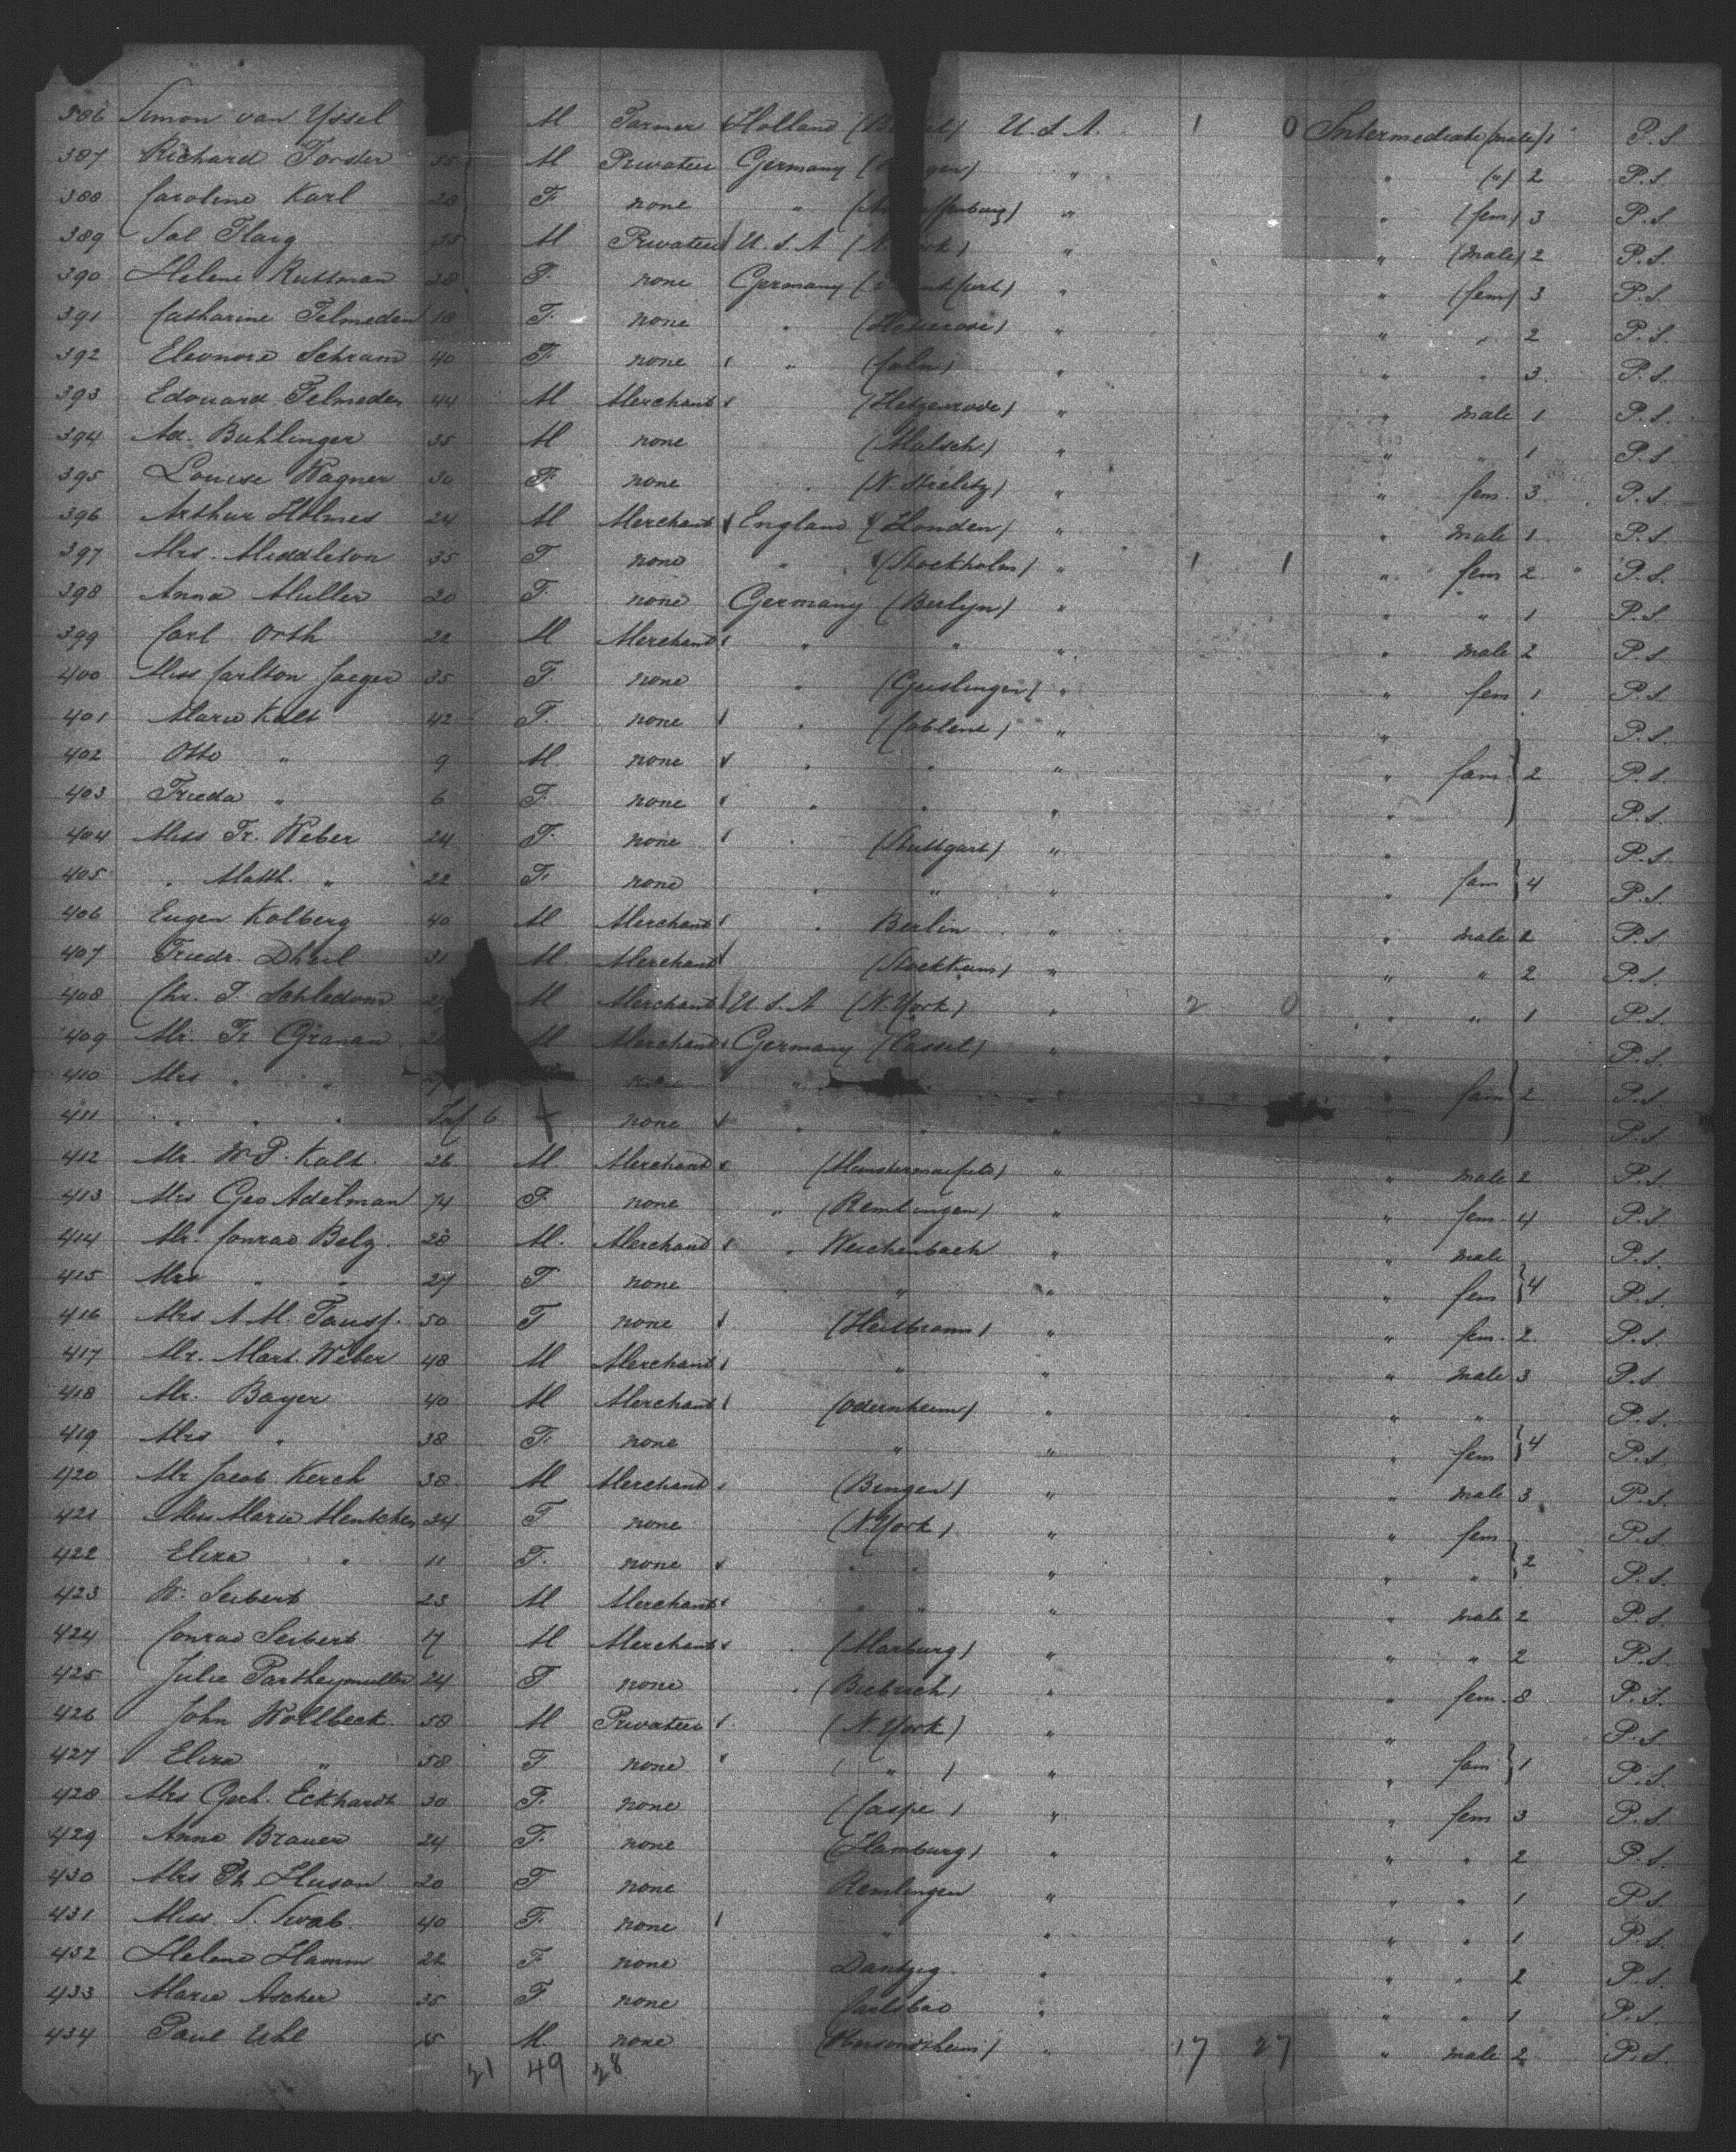 386 Simon van Yssel M Farmer Holland U.S.A. 1 0 Intermediate (male) 1 P.S.
387 Richard Forster 35 M Privatier Germany " " (") 2 P.S.
388 Caroline Karl 28 F. none " " " (fem) 3 P.S.
389 Sal Flarg M Privatier U.S.A " " (male) 2 P.S.
390 Helene Rustman 28 F. none Germany " " (fem) 3 P.S.
391 Catharine Felmeden 18 F. none " " " " 2 P.S.
392 Eleonore Schram 40 F. none " (Culm) " " " 3 P.S.
393 Edouard Felmeden 44 M Merchant (Hetzerode) " " male 1 P.S.
394 Ad. Buhlinger 35 M none (Malsch) " " " 1 P.S.
395 Louise Wagner 30 F. none (N. Strelitz) " " fem. 3 P.S.
396 Arthur Holmes 24 M Merchant England (Londen) " " male 1 P.S.
397 Mrs. Middleton 35 F none " (Stockholm) " 1 1 " fem 2 P.S.
398 Anna Muller 20 F. none Germany (Berlyn) " " " 1 P.S.
399 Carl Orth 22 M Merchant " " " " male 2 P.S.
400 Miss Carlton Jaeger 35 F none " (Geislingen) " " fem 1 P.S.
401 Marie Kalt 42 F. none " (Coblent) " " P.S.
402 Otto " 9 M. none " " " " fam. 2 P.S.
403 Frieda " 6 F. none " " " " P.S.
404 Miss Fr. Weber 24 F. none " (Stuttgart) " " P.S.
405 " Math. " 22 F. none " " " " fam 4 P.S.
406 Eugen Kolberg 40 M Merchant " Berlin " " male 2 P.S.
407 Friedr. Dheil 31 M. Merchant (Stockheim) " " " 2 P.S.
408 Chr. F. Schledorn M Merchant U.S.A (N. York) " 2 0 " " 1 P.S.
409 Mr. Fr. Granan M Merchant Germany (Cassel) " " P.S.
410 Mrs " " none " " " fam 2 P.S.
411 " " " Inf 6 none " " " " P.S.
412 Mr. W. P. Kalt 26 M. Merchant (Munstermaifeld) " " male 2 P.S.
413 Mrs Geo Adelman 74 F none " (Remlingen) " " fem. 4 P.S.
414 Mr. Conrad Belz 28 M. Merchant " Weichenbach " " male P.S.
415 Mrs " " 27 F none " " " fem 4 P.S.
416 Mrs A. M. Faust. 50 F none (Heilbronn) " " fem. 2. P.S.
417 Mr. Mart. Weber 48 M Merchant " " " male 3 P.S.
418 Mr. Bayer 40 M Merchant (Odernheim) " " " P.S.
419 Mrs " 38 F. none " " " fem 4 P.S.
420 Mr Jacob Kerch 38 M Merchant (Bingen) " " male 3 P.S.
421 Miss Marie Mentchen 34 F none (N. York) " " fem P.S.
422 Eliza " 11 F. none " " " " " 2 P.S.
423 W. Seibert 23 M Merchant " " " " male 2 P.S.
424 Conrad Seibert 17 M Merchant " (Marburg) " " " 2 P.S.
425 Julie Partheymuller 24 F none " (Biebrich) " " fem. 8 P.S.
426 John Wollbeck 58 M Privatier (N. York) " " P.S.
427 Eliza " 58 F none ( " ) " " fam 1 P.S.
428 Mrs Gerh. Eckhardt 30 F. none (Caspe) " " fem 3 P.S.
429 Anna Brauer 24 F. none (Hamburg) " " " 2 P.S.
430 Mrs Th. Huson 20 F none Remlingen " " " 1 P.S.
431 Miss. S. Swab. 40 F. none " " " " 1 P.S.
432 Helene Hamm 22 F none Dantzig " " " 2 P.S.
433 Marie Ascher 35 F. none Carlsbad " " " 1 P.S.
434 Paul Uhl 15 M. none " 17 27 " male 2 P.S.
21 49 28